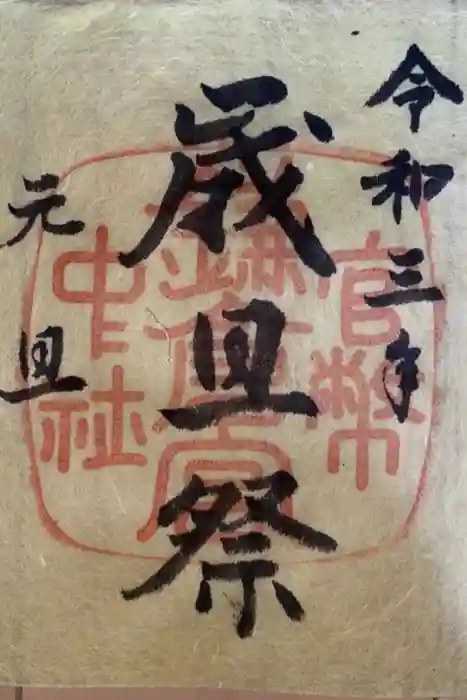 令和三年
歳旦祭
元旦
官幣
中社
鎌倉宮